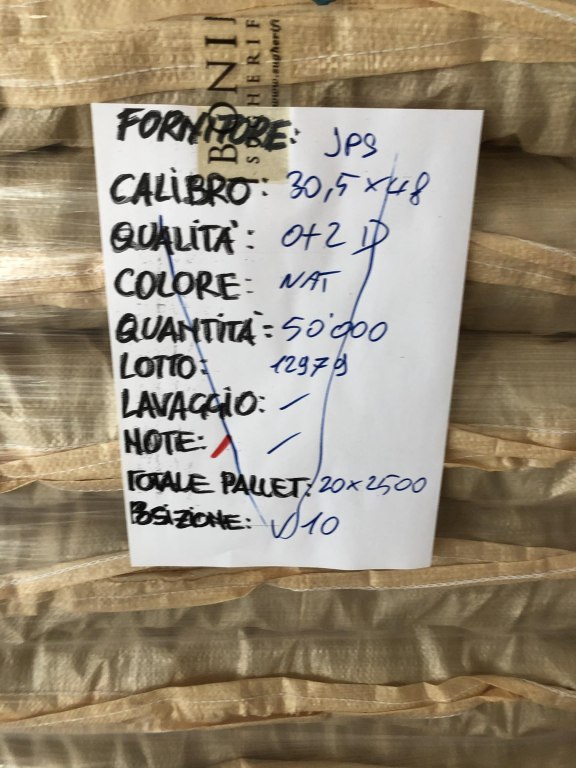 BONI
SUGHERIF
www.sugherifi
FORNITORE: JPS
CALIBRO: 30,5 x 48
QUALITÀ: 0+2 D
COLORE: NAT
QUANTITÀ: 50'000
LOTTO: 12979
LAVAGGIO: /
NOTE: /
TOTALE PALLET: 20 x 2500
POSIZIONE: V10